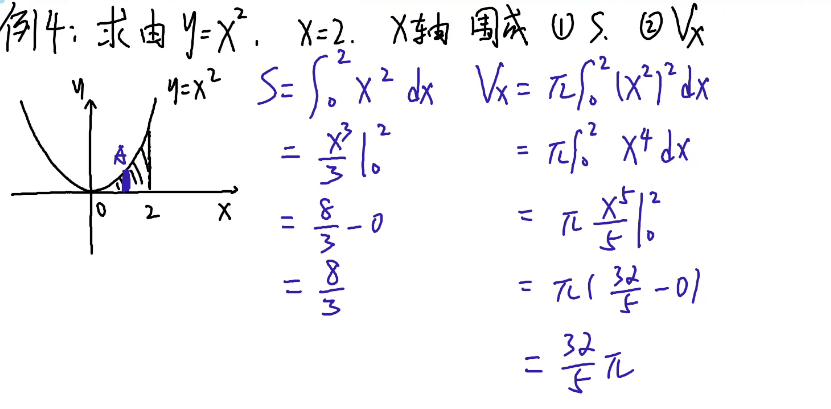 例4: 求由 y=x², x=2. x轴 围成 ① S. ② Vx
y
y=x²
A
0 2 x
S=∫₀² x² dx
= x³/3 |₀²
= 8/3 - 0
= 8/3
Vx = π∫₀² (x²)² dx
= π∫₀² x⁴ dx
= π x⁵/5 |₀²
= π( 32/5 - 0)
= 32/5 π